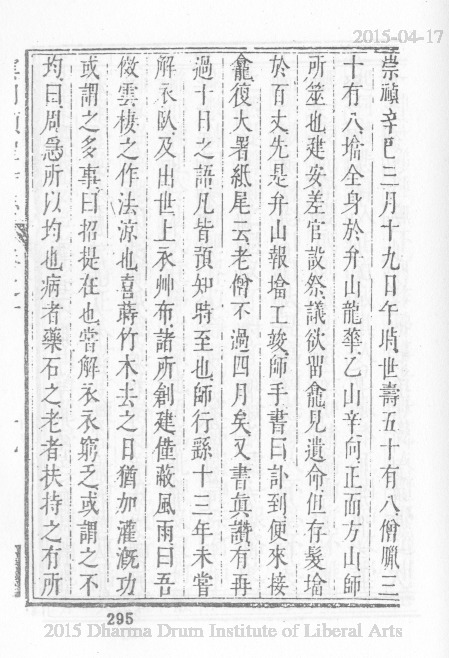 2015-04-17
崇禎辛巳三月十九日午時世壽五十有八僧臘三
十有八塔全身於弁山龍華乙山辛向正面方山師
所筮也建安差官設祭議欲留龕見遺命但存髮塔
於百丈先是弁山報塔工竣師手書曰訃到便來接
龕復大署紙尾云老僧不過四月矣又書真讚有再
過十日之語凡皆預知時至也師行繇十三年未嘗
解衣臥及出世上衣艸布諸所創建僅蔽風雨曰吾
傚雲棲之作法凉也喜蒔竹木去之日猶加灌漑功
或謂之多事曰招提在也嘗解衣衣窮乏或謂之不
均曰周急所以均也病者藥石之老者扶持之有所
295
2015 Dharma Drum Institute of Liberal Arts